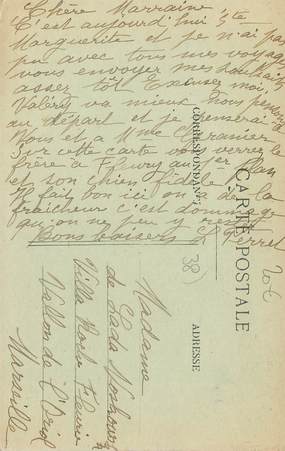 Chère Marraine
C'est aujourd'hui Ste
Marguerite et je n'ai pas
pu avec tous mes voyages
vous envoyer mes souhaits
assez tôt Excusez moi,
Valéry va mieux nous pensons
au départ et je penserai à
Vous et a Mme
Sur cette carte vous verrez le
frère à Fleury au 1er plan
et son chien fidèle
Il fait bon ici on a de la
fraicheur c'est dommage
qu'on ne peu y rester
Bons baisers Perret
CARTE POSTALE
CORRESPONDANCE
ADRESSE
38)
20€
Madame
de Lada
Villa Roche Fleurie
Vallon de l'Oriol
Marseille